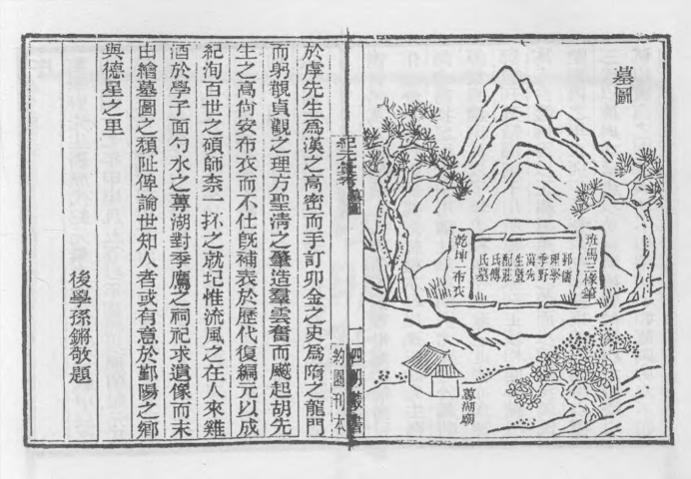 墓圖
班馬三椽筆
鄞儒
理學
季野
萬先
生暨
配莊
氏傅
氏墓
乾坤一布衣
蓴湖廟
紀元彙考 墓圖
一
四明叢書
約園刊本
於虖先生爲漢之高密而手訂卯金之史爲隋之龍門
而躬觀貞觀之理方聖淸之肇造羣雲奮而飈起胡先
生之高尙安布衣而不仕旣補表於歷代復編元以成
紀洵百世之碩師柰一抔之就圮惟流風之在人來雞
酒於學子面勺水之蓴湖對季鷹之祠祀求遺像而末
由繪墓圖之頹阯俾諭世知人者或有意於鄞陽之鄉
與德星之里
後學孫鏘敬題